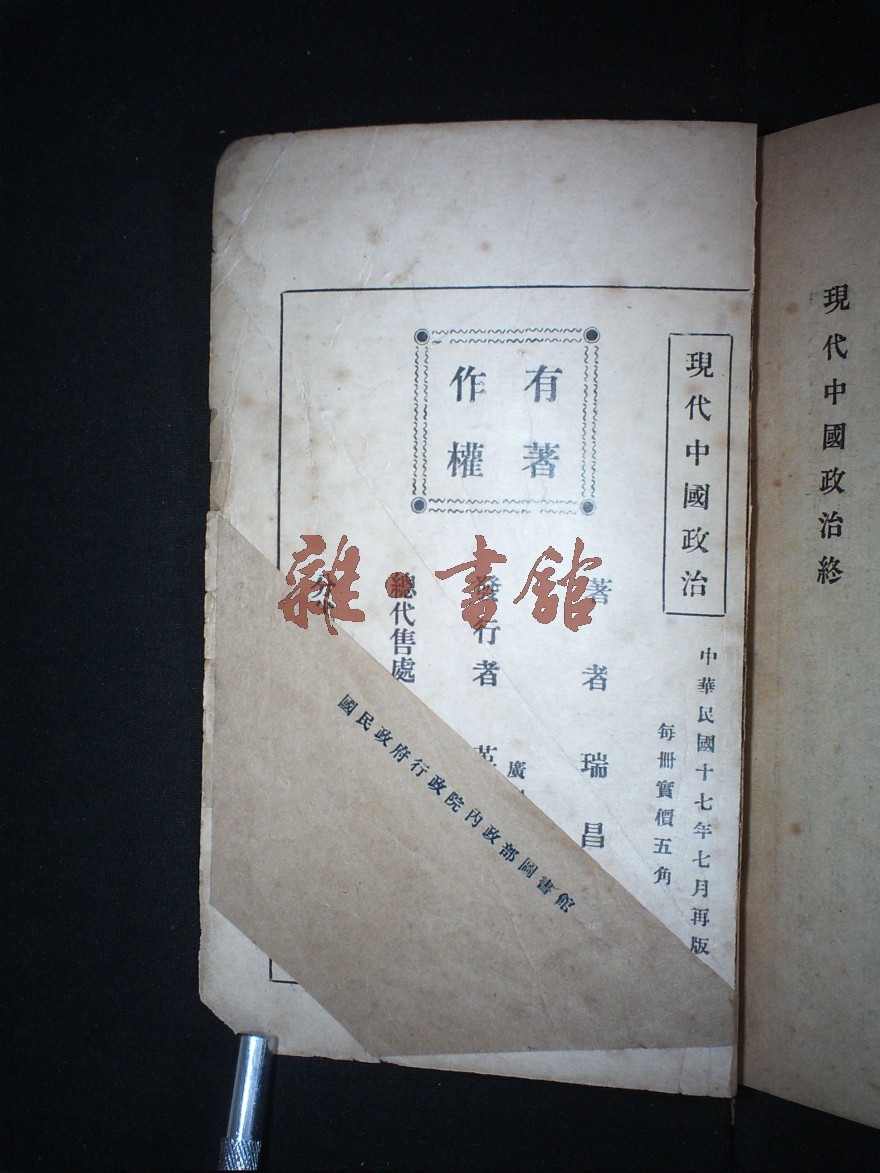 現代中國政治終
現代中國政治
中華民國十七年七月再版
每冊實價五角
有著
作權
著者瑞昌
廣
發行者
總代售處
國民政府行政院內政部圖書館
雜·書館